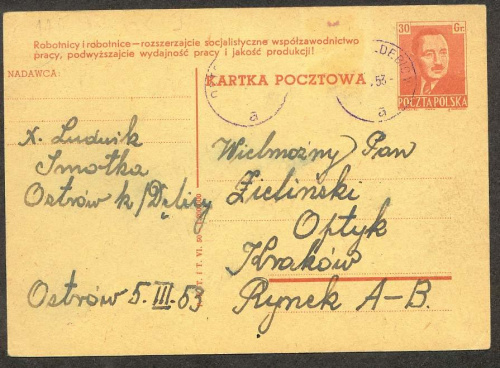 30 Gr.
POCZTA POLSKA
Robotnicy i robotnice — rozszerzajcie socjalistyczne współzawodnictwo
pracy, podwyższajcie wydajność pracy i jakość produkcji!
NADAWCA:
KARTKA POCZTOWA
53
a
a
X. Ludwik
Smołka
Ostrów k/Dębicy
Ostrów 5.III.53
Wielmożny Pan
Zieliński
Optyk
Kraków
Rynek A-B.